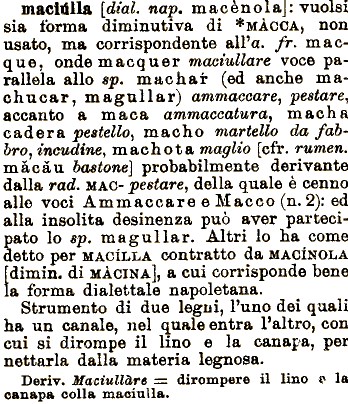 maciúlla [dial. nap. macènola]: vuolsi
sia forma diminutiva di *MÀCCA, non
usato, ma corrispondente all'a. fr. mac-
que, onde macquer maciullare voce pa-
rallela allo sp. machar (ed anche ma-
chucar, magullar) ammaccare, pestare,
accanto a maca ammaccatura, macha
cadera pestello, macho martello da fab-
bro, incudine, machota maglio [cfr. rumen.
măcău bastone] probabilmente derivante
dalla rad. MAC- pestare, della quale è cenno
alle voci Ammaccare e Macco (n. 2): ed
alla insolita desinenza può aver parteci-
pato lo sp. magullar. Altri lo ha come
detto per MACÍLLA contratto da MACÍNOLA
[dimin. di MÀCINA], a cui corrisponde bene
la forma dialettale napoletana.
Strumento di due legni, l'uno dei quali
ha un canale, nel quale entra l'altro, con
cui si dirompe il lino e la canapa, per
nettarla dalla materia legnosa.
Deriv. Maciullàre = dirompere il lino e la
canapa colla maciulla.